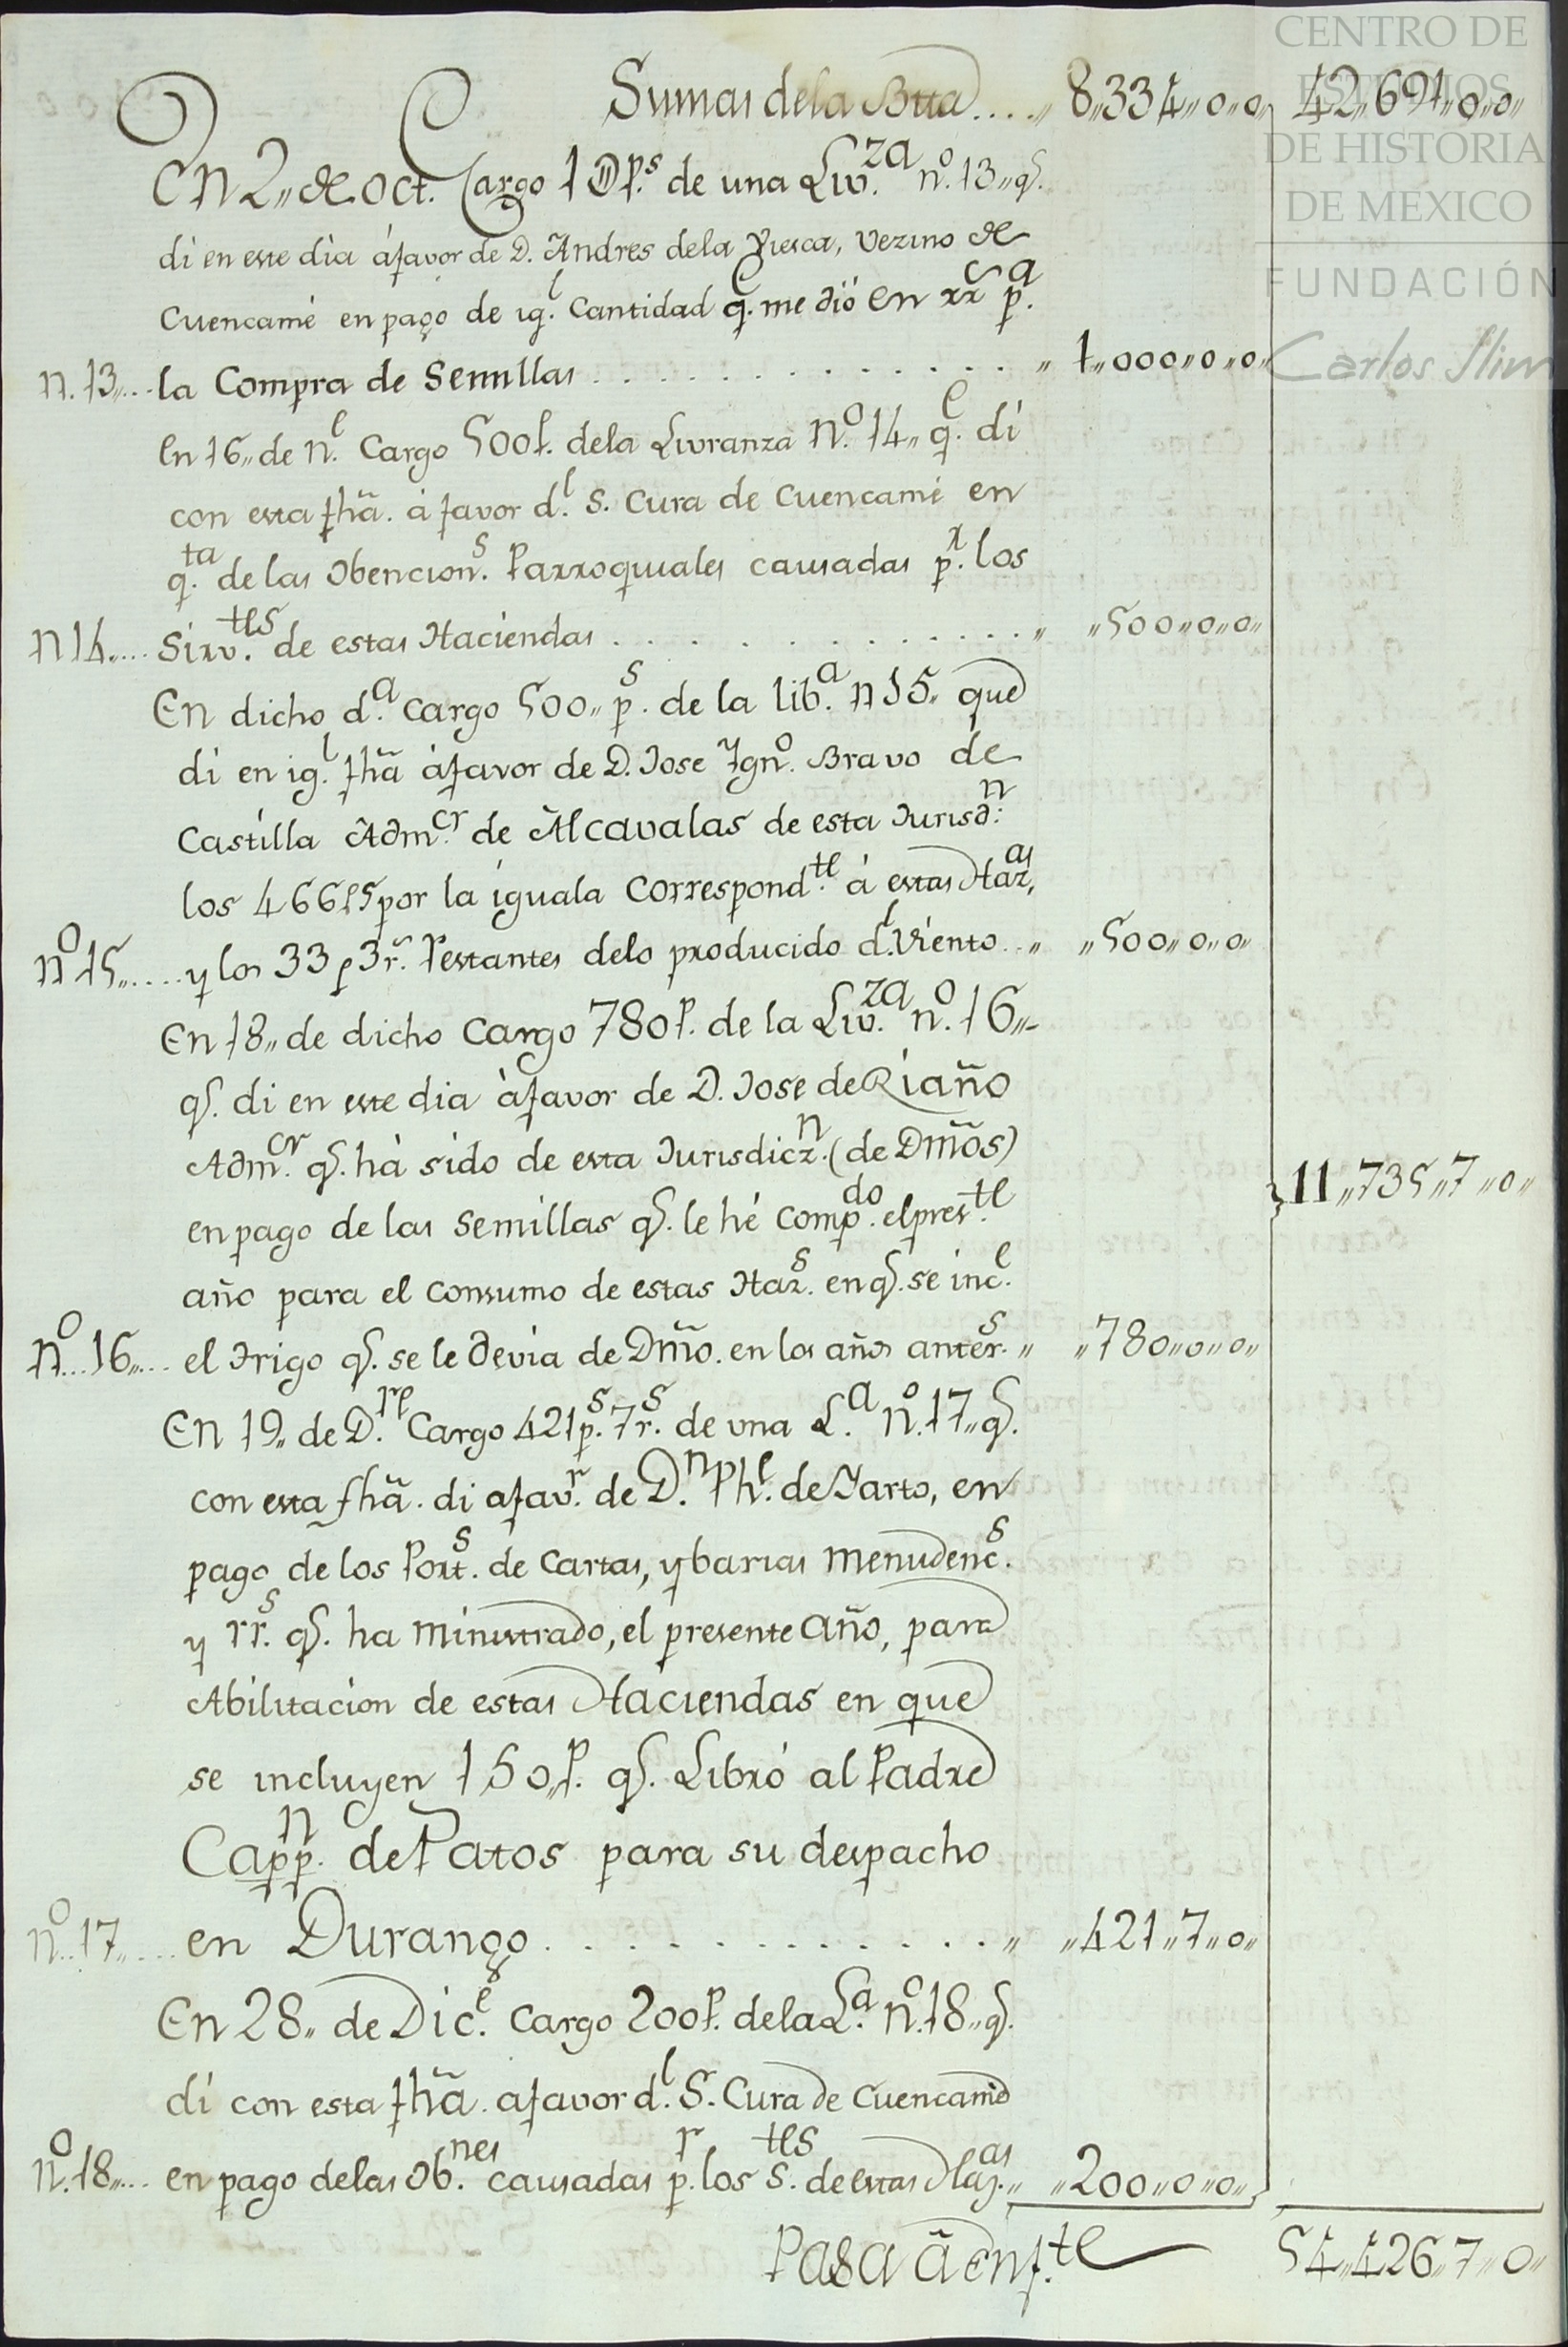 Sumas dela Bta.... „ 8„334„0„0„ 42„691„0„0„
En 2„ de Oct. Cargo 1 D p.s de una Liv.za n.o 13„ q.
di en este dia á favor de D. Andres dela Viesca, Vezino de
Cuencamé en pago de ig.l Cantidad q.e me dió en rr.s p.a
n. 13„... la Compra de Semillas . . . . . . . . . . . . . „ 1„000„0„0„
En 16„ de n.e Cargo 500 p. dela Livranza N.o 14„ q.e di
con esta fhã. á favor d.l S. Cura de Cuencamé en
q.ta de las Obencion.s Parroquiales causadas p.r los
n 14.... Sirv.tes de estas Haciendas . . . . . . . . . . . . . „ „500„0„0„
En dicho d.a Cargo 500„ p.s de la lib.a n 15„ que
di en ig.l fhã á favor de D. Jose Ygn.o Bravo de
Castilla Adm.or de Alcavalas de esta Jurisd.n
los 466 p 5 por la iguala Correspond.te á estas Haz.as,
n.o 15„.... y los 33 p 3 r.s Restantes delo producido d.l Viento.. „ „500„0„0„
En 18„ de dicho Cargo 780 p. de la Liv.za n.o 16„
q.e di en este dia á favor de D. Jose de Riaño
Adm.or q.e há sido de esta Jurisdicz.n (de Dmõs)
en pago de las Semillas q.e le hé Comp.do el pres.te 11„735„7„0„
año para el Consumo de estas Haz.s en q.e se inc.e
n.o 16„.... el Trigo q.e se le devia de Dmõ. en los años anter.s „ „780„0„0„
En 19„ de D.re Cargo 421 p.s 7 r.s de una L.a n.o 17„ q.e
con esta fhã. di a fav.r de D.n Ph.e de Yarto, en
pago de los Port.s de Cartas, y barias menudenc.s
y rr.s q.e ha ministrado, el presente año, para
Abilitacion de estas Haciendas en que
se incluyen 150„ p. q.e Libró al Padre
Capp.n de Patos para su despacho
n.o 17„.... en Durango . . . . . . . . . . . . . „ „421„7„0„
En 28„ de Dic.e Cargo 200 p. dela L.a n.o 18„ q.e
di con esta fhã. a favor d.l S. Cura de Cuencamé
n.o 18„.... en pago delas Ob.nes causadas p.r los S.tes de estas Haz.as „ „200„0„0„
Pasa ã Enf.te 54„426„7„0„
CENTRO DE
ESTUDIOS
DE HISTORIA
DE MEXICO
FUNDACIÓN
Carlos Slim